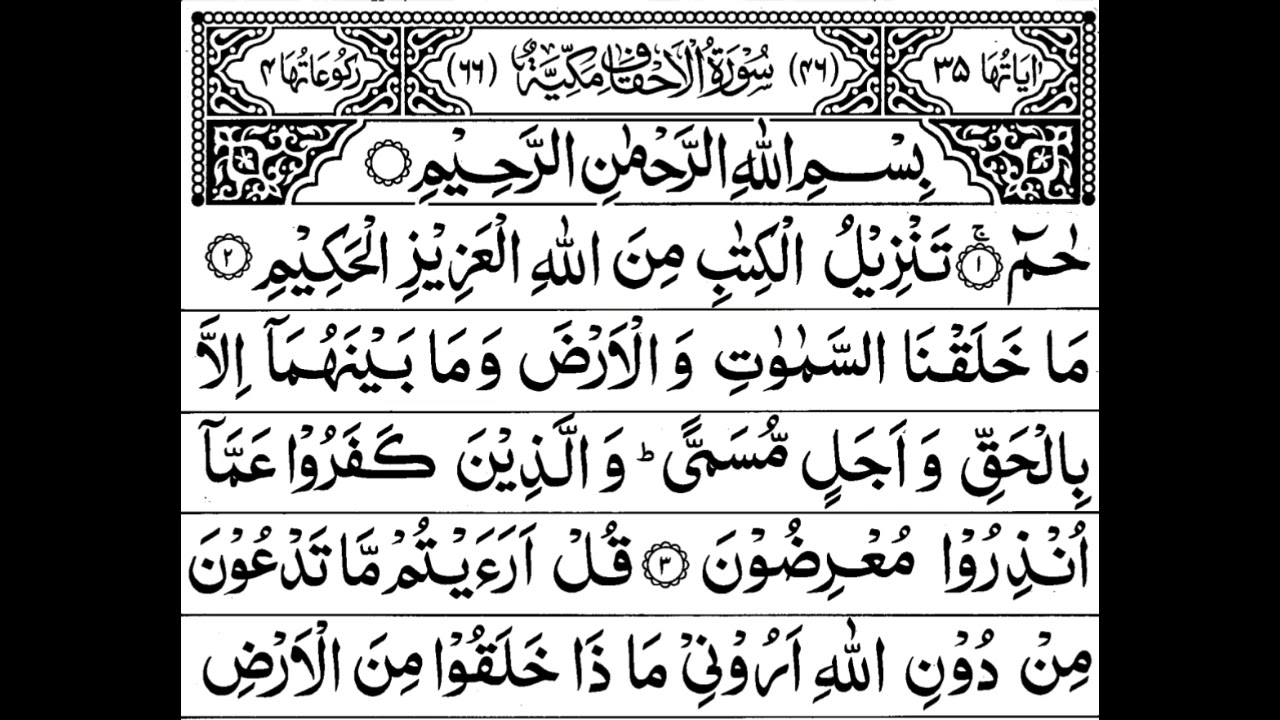 اٰيَاتُهَا ٣٥ (٤٦) سُوْرَةُ الْاَحْقَافِ مَكِّيَّةٌ (٦٦) رُكُوْعَاتُهَا ٤
بِسْمِ اللّٰهِ الرَّحْمٰنِ الرَّحِيْمِ
حٰمٓ ۚ ١ تَنْزِيْلُ الْكِتٰبِ مِنَ اللّٰهِ الْعَزِيْزِ الْحَكِيْمِ ٢
مَا خَلَقْنَا السَّمٰوٰتِ وَالْاَرْضَ وَمَا بَيْنَهُمَاۤ اِلَّا
بِالْحَقِّ وَاَجَلٍ مُّسَمًّى ؕ وَالَّذِيْنَ كَفَرُوْا عَمَّاۤ
اُنْذِرُوْا مُعْرِضُوْنَ ٣ قُلْ اَرَءَيْتُمْ مَّا تَدْعُوْنَ
مِنْ دُوْنِ اللّٰهِ اَرُوْنِيْ مَا ذَا خَلَقُوْا مِنَ الْاَرْضِ